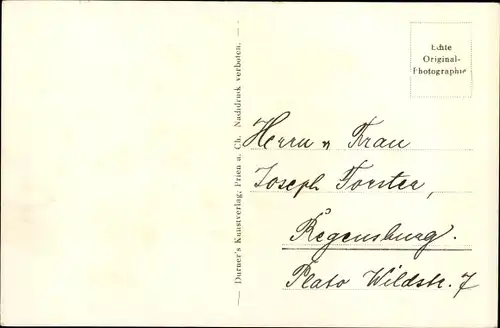 Echte
Original-
Photographie
— Durner's Kunstverlag; Prien a. Ch. Nachdruck verboten. —
Herrn u Frau
Joseph Forster,
Regensburg.
Plato Wildstr. 7